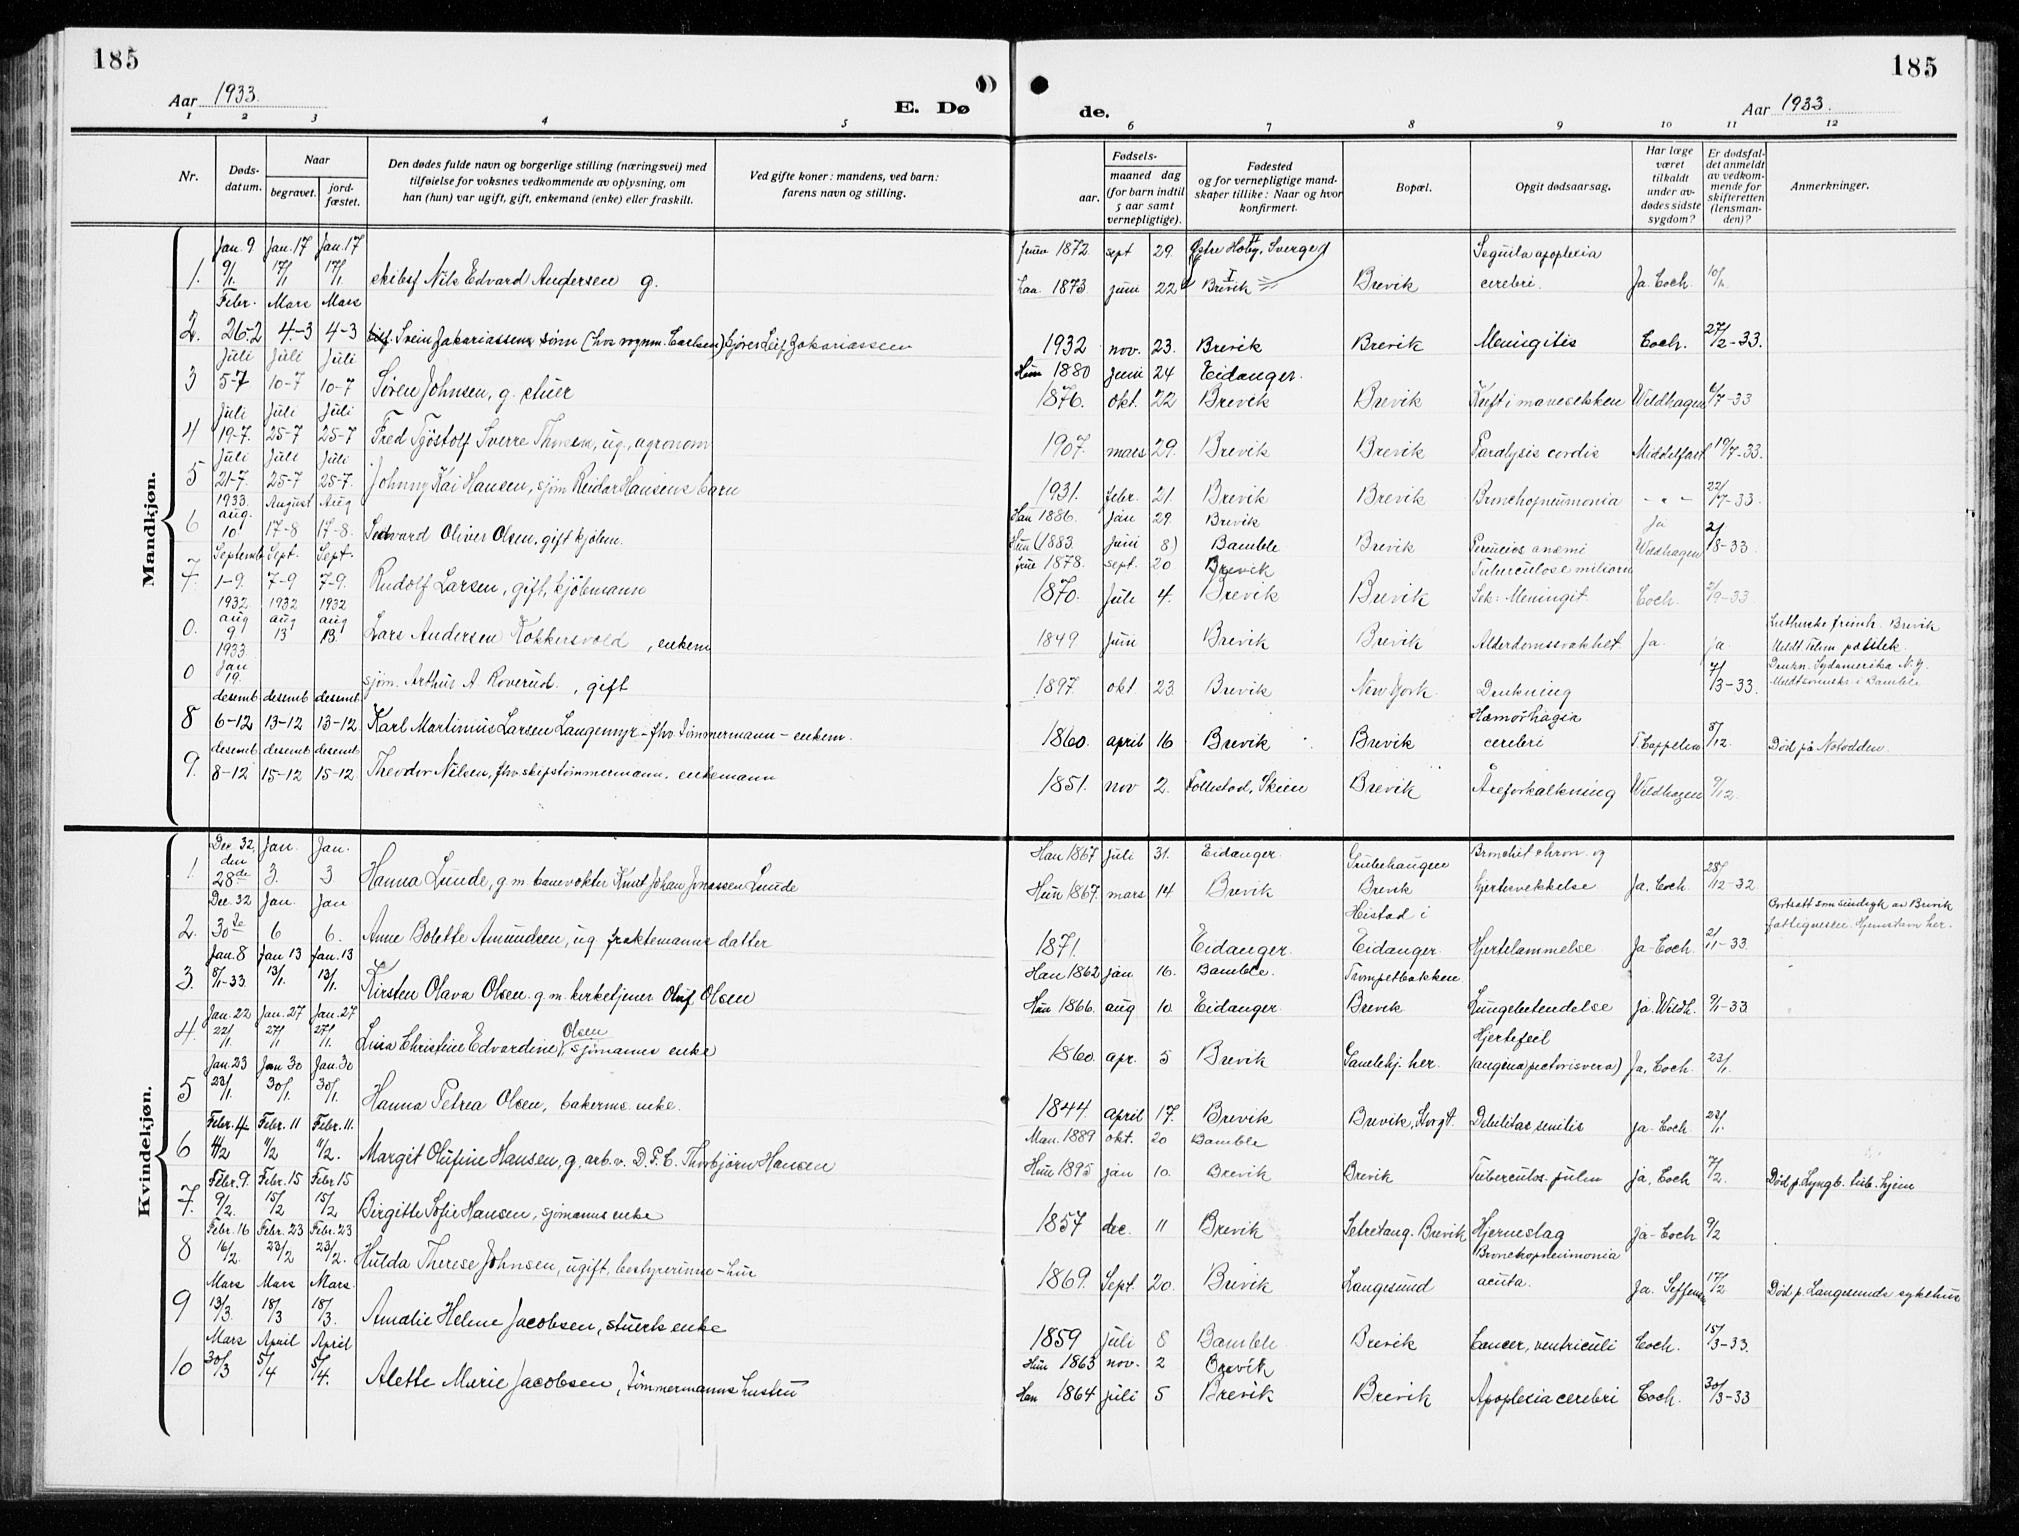 185
185
Aar 1933.
E. Dø
de.
Aar 1933.
1 2 3 4 5 6 7 8 9 10 11 12
Nr.
Døds-
datum.
Naar
begravet.
jord-
fæstet.
Den dødes fulde navn og borgerlige stilling (næringsvei) med
tilføielse for voksnes vedkommende av oplysning, om
han (hun) var ugift, gift, enkemand (enke) eller fraskilt.
Ved gifte koner: mandens, ved barn:
farens navn og stilling.
Fødsels-
aar.
maaned dag
(for barn indtil
5 aar samt
vernepligtige).
Fødested
og for vernepligtige mand-
skaper tillike: Naar og hvor
konfirmert.
Bopæl.
Opgit dødsaarsag.
Har læge
været
tilkaldt
under av-
dødes sidste
sygdom?
Er dødsfal-
det anmeldt
av vedkom-
mende for
skifteretten
(lensman-
den)?
Anmerkninger.
Mandkjøn.
Jan. 9 Jan. 17 Jan. 17 fruen 1872 sept 29. Østre Hoby, Sverge Seguila apoplexia
1. 9/1. 17/1 17/1. skibsf Nils Edvard Andersen g. 1873 juni 22 Brevik Brevik cerebri. Ja. Coch. 10/1.
Febr. Mars Mars
2. 26-2 4-3 4-3 Svein Zakariassen, sønn (hos sognm. Carlsen) Leif Zakariassen 1932 nov. 23. Brevik Brevik Meningitis Coch. 27/2-33.
Juli Juli Juli Hun 1880 Juni 24 Eidanger.
3 5-7 10-7 10-7 Søren Johnsen, g. stuer 1876. okt. 22 Brevik Brevik Kreft i mavesekken Wildhagen 6/7-33
Juli Juli Juli
4 19-7. 25-7 25-7 Fred Tjøstolf Sverre Thorsen, ug., agronom 1907. mars 29. Brevik Brevik Paralysis cordis 19/7-33.
Juli Juli Juli
5 21-7. 25-7 25-7. Johnny Kai Hansen, sjøm Reidar Hansens barn 1931. febr. 21. Brevik Brevik Bronchopneumonia - " - 22/7-33.
1933 August Aug Han 1886. Jan 29. Brevik Ja
6 aug. 10. 17-8 17-8. Oliver Olsen, gift kjøbm. Hun (1883. Juni 8) Bamble Brevik Pernicios anæmi Wildhagen 2/8-33.
Septemb Sept. Sept. frue 1878. sept. 20 Brevik
7. 1-9. 7-9 7-9. Rudolf Larsen, gift, kjøbmann 1870. Juli 4. Brevik Brevik Sek: Meningit. Coch. 2/9-33.
1932 1932 1932 Brevik
0. aug 9. aug 13 aug 13. Lars Andersen Kokkersvold, enkem 1849 Juni Brevik Brevik Alderdomssvakhet Ja. ja
1933.
0 Jan 19. sjøm. Arthur A Roverud., gift 1897. okt. 23. Brevik New York. Drukning 4/3-33. Drukn. Sydamerika N.y.
desemb desemb. desemb. Hæmorhagia
8 6-12 13-12 13-12 Karl Martinius Larsen Langemyr - fhv. Tømmermann - enkem. 1860. april 16 Brevik Brevik cerebri T. Cappelen 8/12. Død på Notodden.
desemb desemb desemb
9. 8-12 15-12 15-12. Theodor Nilsen, fhv. skipstømmermann, enkemann 1851. nov 2. Follestad, Skien Brevik Åreforkalkning Wildhagen 9/12.
Kvindekjøn.
Dec. 32, Jan. Jan. Han 1867 juli 31. Eidanger. Grubehaugen Bronchit chron. og
1. den 28de 3. 3 Hanna Lunde, g.m. banevokter Knut Johan Jonassen Lunde Hun 1867. mars 14 Brevik Brevik hjertesvekkelse Ja, Coch 28/12-32
Dec. 32 Jan. Jan Heistad i
2. 30te 6 6. Anne Bolette Amundsen, ug fraktemanns datter 1871. Eidanger. Eidanger. Hjertelammelse Ja-Coch. fattigvesen. Hjemstavn her.
Jan. 8 Jan 13 Jan. 13 Han 1862 jan 16. Bamble. Trompetbakken
3. 8/1-33 13/1. 13/1. Kirsten Olava Olsen. g.m. kirketjener Oluf Olsen Hun 1866. aug 10. Eidanger. Brevik. Lungebetendelse Ja. Wildh. 9/1-33
Jan. 22 Jan. 27 Jan. 27 Hjertefeil
4. 22/1 27/1 27/1. Lina Christine Edvardine Olsen, sjømanns enke 1860. apr. 5 Brevik Gamlehj. her. (angina pectoris vera) Ja, Coch. 23/1.
Jan. 23 Jan 30 Jan. 30
5 23/1. 30/1. 30/1. Hanna Petrea Olsen, bakerms. enke. 1844. april 17. Brevik Brevik, Storgt. Debilitas senilis ja-Coch 23/1.
Febr. 4 Febr. 11 Febr. 11. Man. 1889 okt. 20 Bamble
6 4/2 11/2 11/2. Margit Olufine Hansen, g, arb. v. D.P.C. Thorbjørn Hansen Hun 1895 jan 10. Brevik Brevik Tuberculos. pulm ja, Coch 7/2. Død p. Lyngb. tub. hjem
Febr. 9. Febr. 15 Febr 15
7. 9/2. 15/2 15/2 Birgitte Sofie Hansen, sjømanns enke 1857 dec. 11 Brevik Brevik Hjerneslag ja-Coch 9/2
Febr. 16 Febr. 23 Febr. 23 Bronchopneumonia
8 16/2. 23/2 23/2. Hulda Therese Johnsen, ugift, bestyrerinne - hus 1869. Sept. 20. Brevik Langesund acuta. Ja. 17/2 Død p. Langesunds sykehus
Mars Mars Mars.
9 13/3. 18/3 18/3. Amalie Helene Jacobsen, stuerts enke 1859 juli 8 Bamble. Brevik Cancer, ventriculi Coch. 15/3-33.
Mars April April Hun 1863 nov. 2 Brevik
10 30/3 5/4 5/4. Alette Marie Jacobsen, Tømmermanns hustru Han 1864 juli 5 Brevik Brevik Apoplexia cerebri Coch. 30/3-33